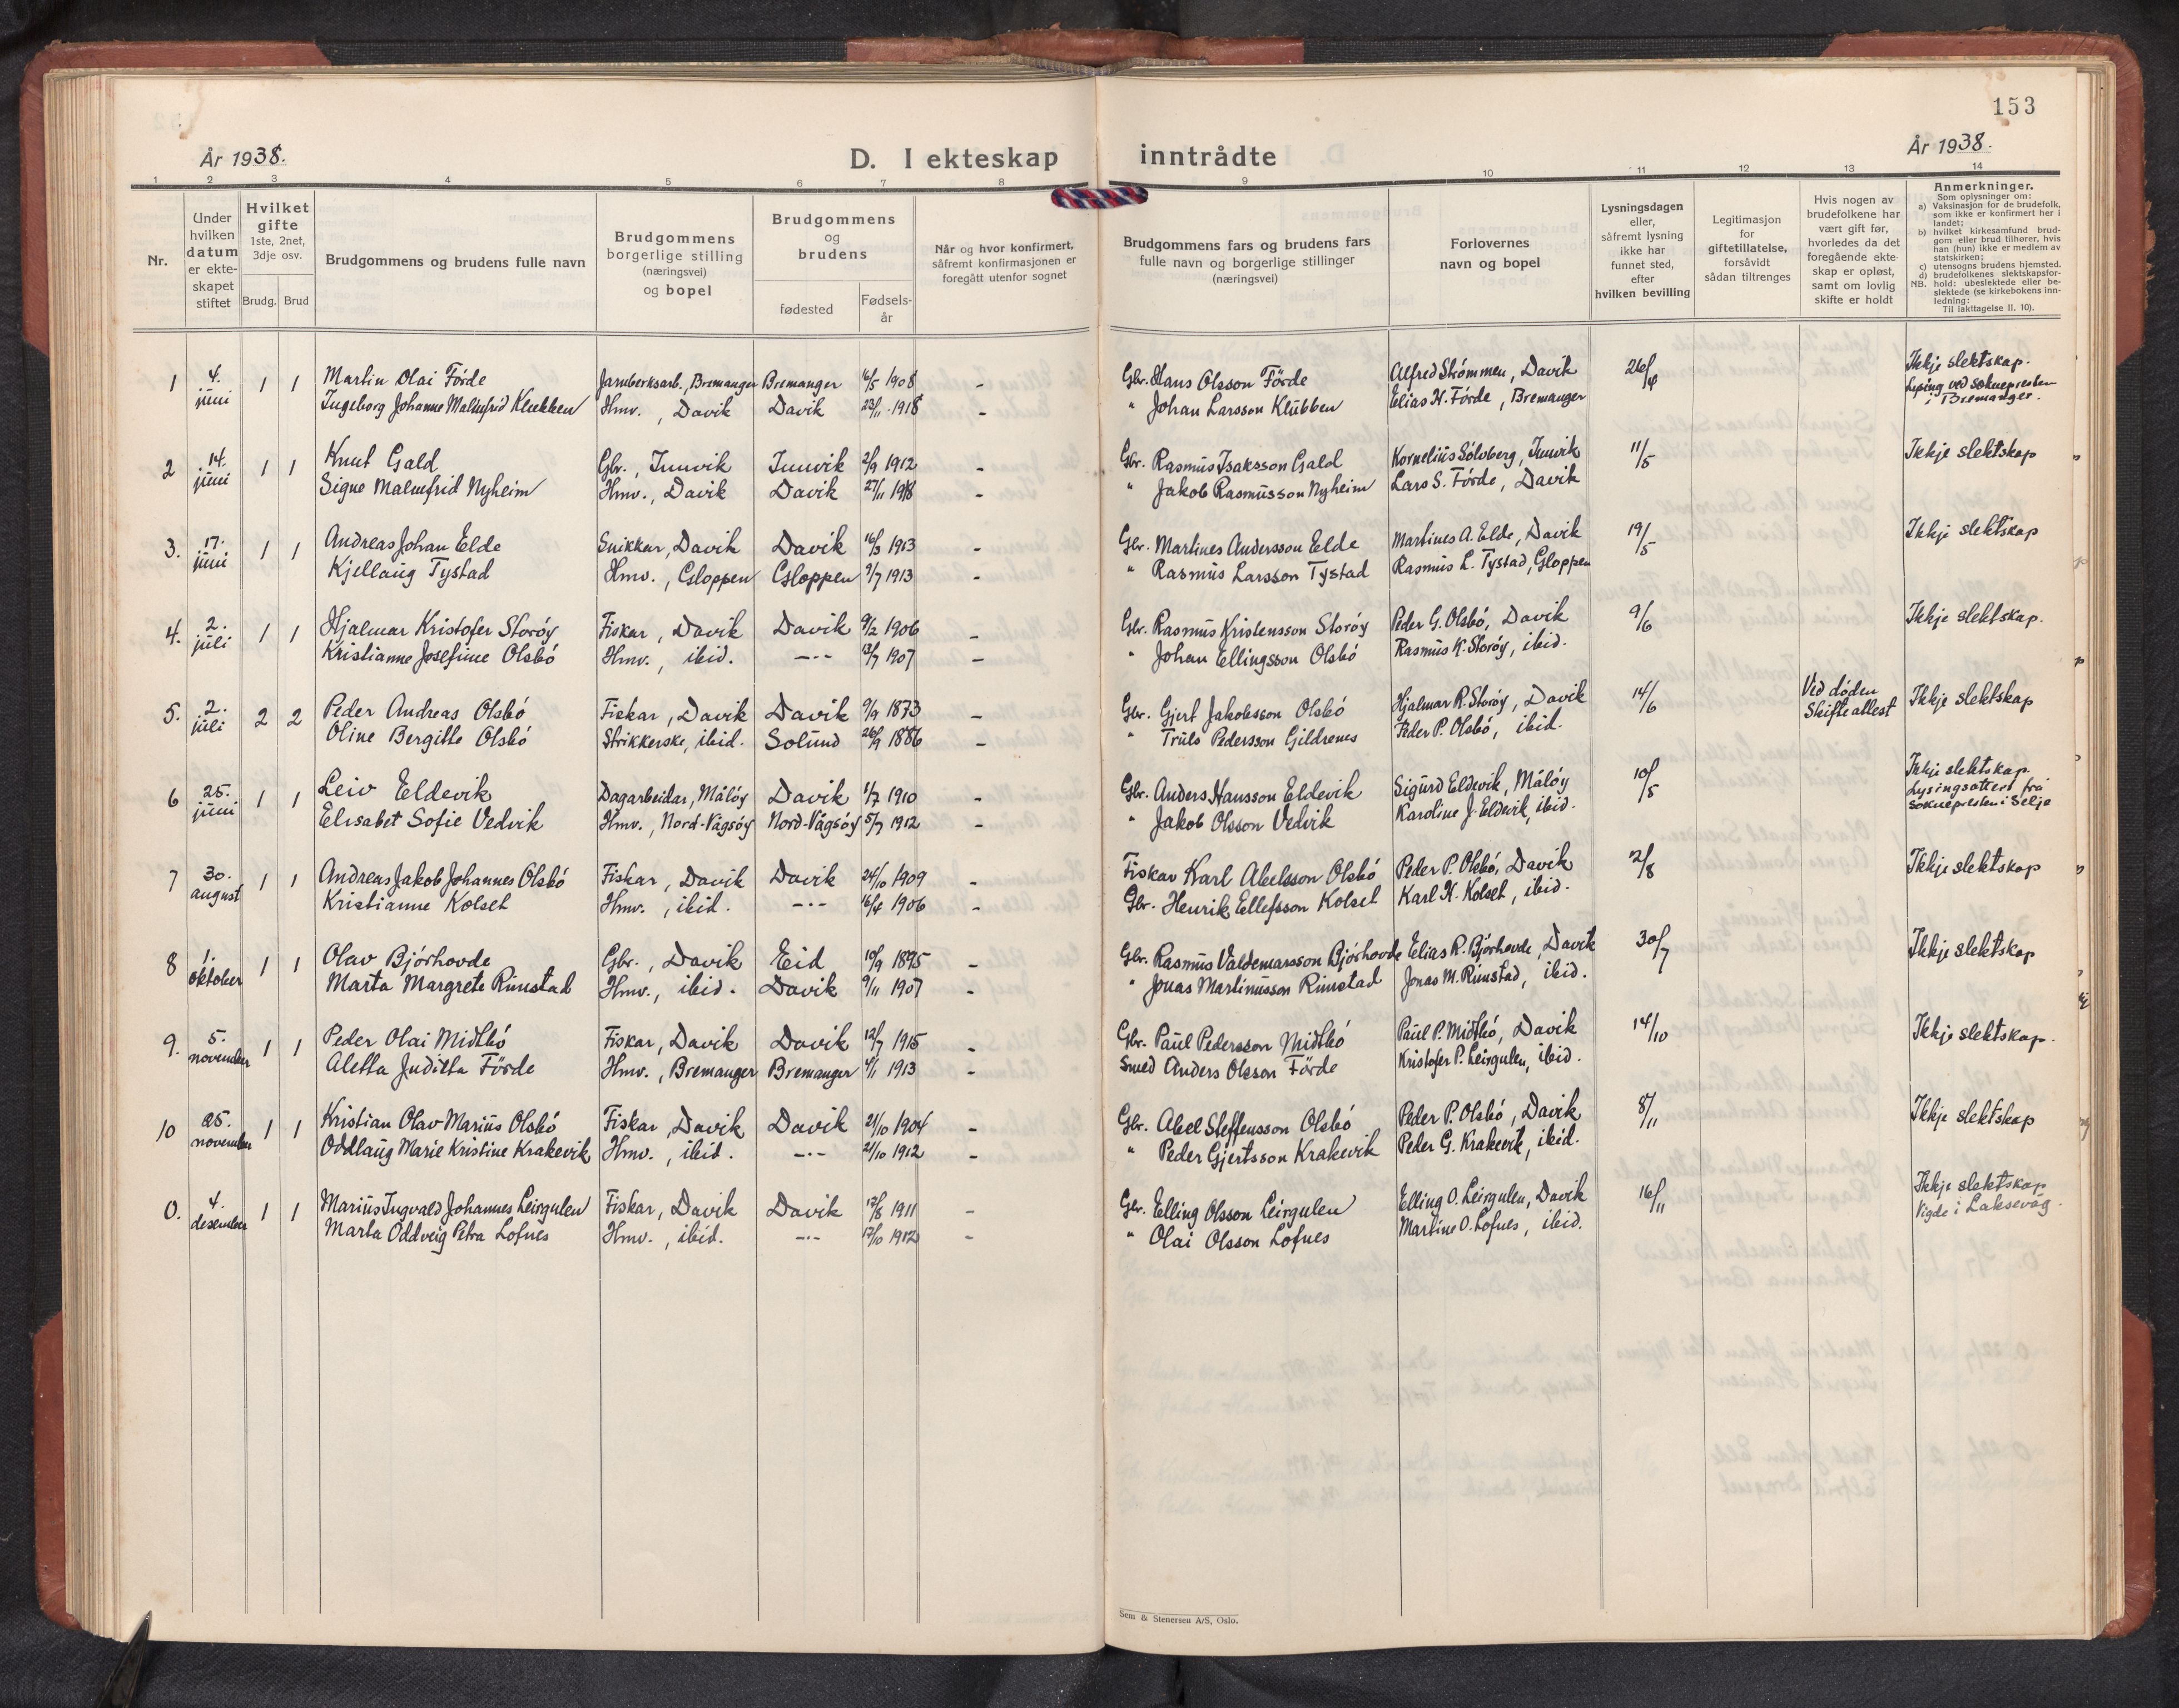 153
År 1938.
D. I ekteskap inntrådte
År 1938.
1 2 3 4 5 6 7 8 9 10 11 12 13 14
Nr.
Under hvilken datum er ekteskapet stiftet
Hvilket gifte 1ste, 2net, 3dje osv.
Brudg. Brud
Brudgommens og brudens fulle navn
Brudgommens borgerlige stilling (næringsvei) og bopel
Brudgommens og brudens
fødested
Fødselsår
Når og hvor konfirmert, såfremt konfirmasjonen er foregått utenfor sognet
Brudgommens fars og brudens fars fulle navn og borgerlige stillinger (næringsvei)
Forlovernes navn og bopel
Lysningsdagen eller, såfremt lysning ikke har funnet sted, efter hvilken bevilling
Legitimasjon for giftetillatelse, forsåvidt sådan tiltrenges
Hvis nogen av brudefolkene har vært gift før, hvorledes da det foregående ekteskap er opløst, samt om lovlig skifte er holdt
Anmerkninger.
Som oplysninger om:
a) Vaksinasjon for de brudefolk, som ikke er konfirmert her i landet;
b) hvilket kirkesamfund brudgom eller brud tilhører, hvis han (hun) ikke er medlem av statskirken;
c) utensogns brudens hjemsted.
d) brudefolkenes slektskapsforhold: ubeslektede eller beslektede (se kirkebokens innledning:
NB. Til iakttagelse II. 10).
1 4. juni 1 1 Martin Olai Förde Jarnverksarb., Bremanger Bremanger 16/5 1908 - Gbr. Hans Olsson Förde Alfred Strömmen, Davik 26/4 Ikkje slektskap.
Ingeborg Johanne Malmfrid Klubben Hmv., Davik Davik 23/11 1918 - " Johan Larsson Klubben Elias H. Förde, Bremanger Lysing ved soknepresten i Bremanger.
2 14. juni 1 1 Knut Gald Gbr., Innvik Innvik 2/9 1912 - Gbr. Rasmus Isaksson Gald Kornelius Sölvberg, Innvik 11/5 Ikkje slektskap
Signe Malmfrid Nyheim Hmv., Davik Davik 27/11 1918 - " Jakob Rasmusson Nyheim Lars S. Förde, Davik
3. 17. juni 1 1 Andreas Johan Elde Snikkar, Davik Davik 16/3 1913 - Gbr. Martines Andersson Elde Martines A. Elde, Davik 19/5 Ikkje slektskap
Kjellaug Tystad Hmv., Gloppen Gloppen 9/7 1913 - " Rasmus Larsson Tystad Rasmus L. Tystad, Gloppen
4. 2. juli 1 1 Hjalmar Kristofer Storöy Fiskar, Davik Davik 9/2 1906 Gbr. Rasmus Kristensson Storöy Peder G. Olsbö, Davik 9/6 Ikkje slektskap.
Kristianne Josefine Olsbö Hmv., ibid. -"- 13/7 1907 - " Johan Ellingsson Olsbö Rasmus K. Storöy, ibid.
5. 2. juli 2 2 Peder Andreas Olsbö Fiskar, Davik Davik 9/9 1873 - Gbr. Gjert Jakobsson Olsbö Hjalmar R. Storöy, Davik 14/6 Ved döden Skifteattest Ikkje slektskap
Oline Bergitte Olsbö Strikkerske, ibid. Solund 26/9 1886 - " Truls Pedersson Gildrenes Peder P. Olsbö, ibid.
6 25. juni 1 1 Leiv Eldevik Dagarbeidar, Målöy Davik 1/7 1910 - Gbr. Anders Hansson Eldevik Sigurd Eldevik, Målöy 10/5 Ikkje slektskap.
Elisabet Sofie Vedvik Hmv., Nord-Vågsöy Nord-Vågsöy 5/7 1912 - " Jakob Olsson Vedvik Karoline J. Eldevik, ibid. Lysingsattest frå soknepresten i Selje
7 30. august 1 1 Andreas Jakob Johannes Olsbö Fiskar, Davik Davik 24/10 1909 - Fiskar Karl Abelsson Olsbö Peder P. Olsbö, Davik 12/8 Ikkje slektskap
Kristianne Kolset Hmv., ibid. -"- 16/4 1906 - Gbr. Henrik Ellefsson Kolset Karl H. Kolset, ibid.
8 1. oktober 1 1 Olav Björhovde Gbr., Davik Eid 10/9 1895 - Gbr. Rasmus Valdemarsson Björhovde Elias R. Björhovde, Davik 30/7 Ikkje slektskap
Marta Margrete Rimstad Hmv., ibid. Davik 9/11 1907 - " Jonas Martinusson Rimstad Jonas M. Rimstad, ibid.
9. 5. november 1 1 Peder Olai Midtbö Fiskar, Davik Davik 12/7 1915 - Gbr. Paul Pedersson Midtbö Paul P. Midtbö, Davik 14/10 Ikkje slektskap.
Aletta Juditta Förde Hmv., Bremanger Bremanger 4/11 1913 - Smed Anders Olsson Förde Kristofer P. Leirgulen, ibid.
10 25. november 1 1 Kristian Olav Marius Olsbö Fiskar, Davik Davik 21/10 1904 - Gbr. Abel Steffensson Olsbö Peder P. Olsbö, Davik 8/11 Ikkje slektskap
Oddlaug Marie Kristine Krakevik Hmv., ibid. -"- 21/10 1912 - " Peder Gjertsson Krakevik Peder G. Krakevik, ibid.
0. 4. desember 1 1 Marius Ingvald Johannes Leirgulen Fiskar, Davik Davik 17/8 1911 - Gbr. Elling Olsson Leirgulen Elling O. Leirgulen, Davik 16/11 Ikkje slektskap
Marta Oddveig Petra Lofnes Hmv., ibid. -"- 17/10 1912 - " Olai Olsson Lofnes Martine O. Lofnes, ibid. Vigde i Laksevåg.
Sem & Stenersen A/S, Oslo.